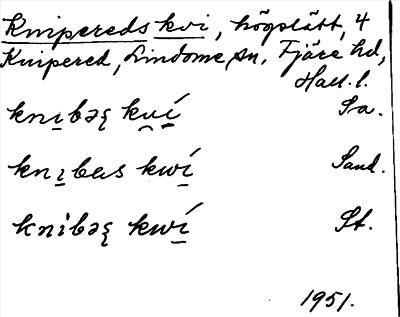 Knipereds kvi, högslätt, 4
Knipered, Lindome sn. Fjäre hd,
Hall. l.
knıbəʂ kví Sa.
knıbas kwí Sand.
knibəʂ kwí St.
1951.